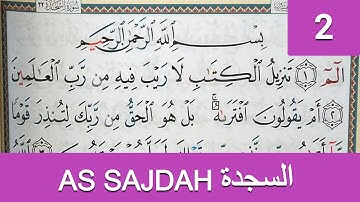 2
بِسْمِ اللَّهِ الرَّحْمَٰنِ الرَّحِيمِ
الٓمٓ ۝١ تَنزِيلُ الْكِتَابِ لَا رَيْبَ فِيهِ مِن رَّبِّ الْعَالَمِينَ
۝٢ أَمْ يَقُولُونَ افْتَرَاهُ ۚ بَلْ هُوَ الْحَقُّ مِن رَّبِّكَ لِتُنذِرَ قَوْمًا
AS SAJDAH السجدة